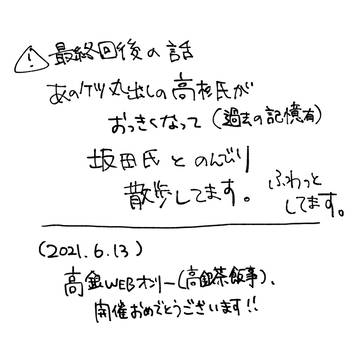 ⚠ 最終回後の話
あのケツ丸出しの高杉氏が
おっきくなって(過去の記憶有)
坂田氏とのんびり
散歩してます。
ふわっと
してます。
(2021.6.13)
高銀WEBオンリー(高銀茶飯事)、
開催おめでとうございます!!